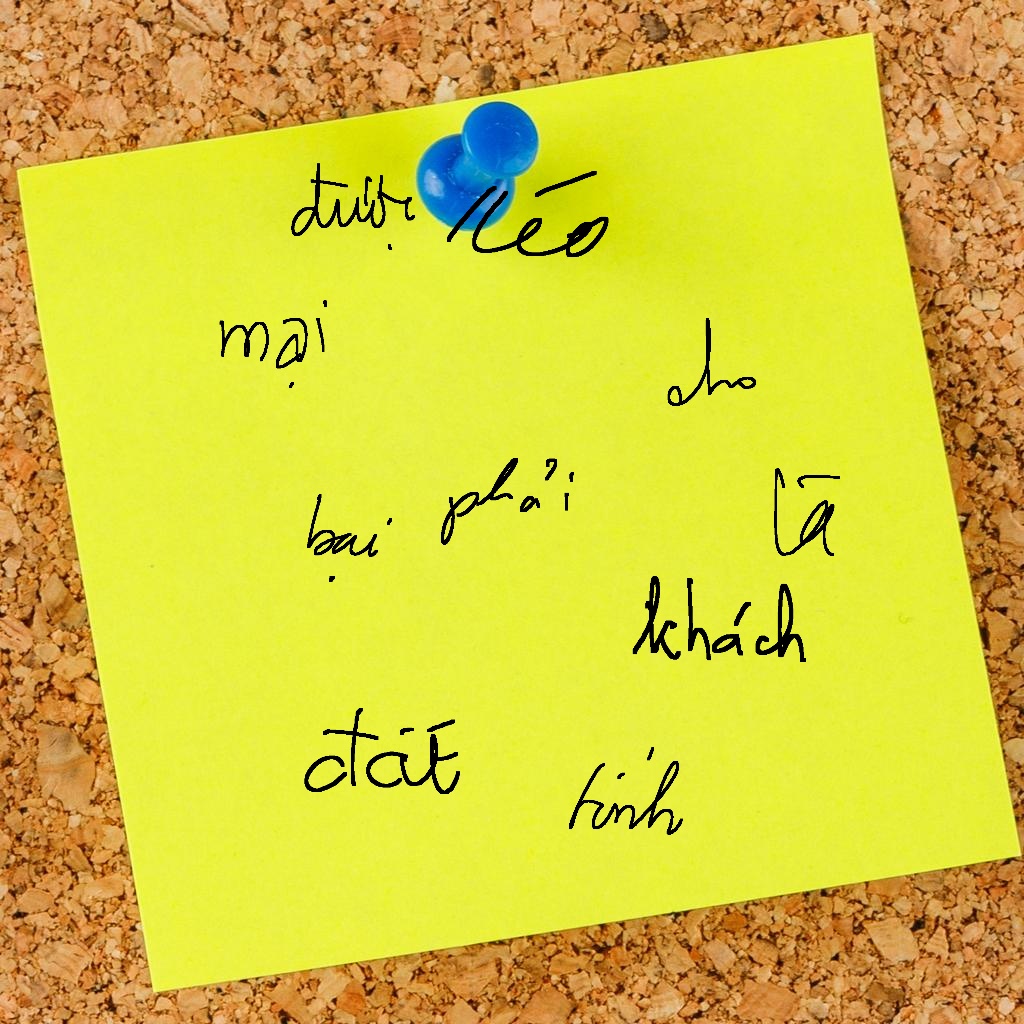 được kéo
mại
cho
bại phải là
khách
đất tính